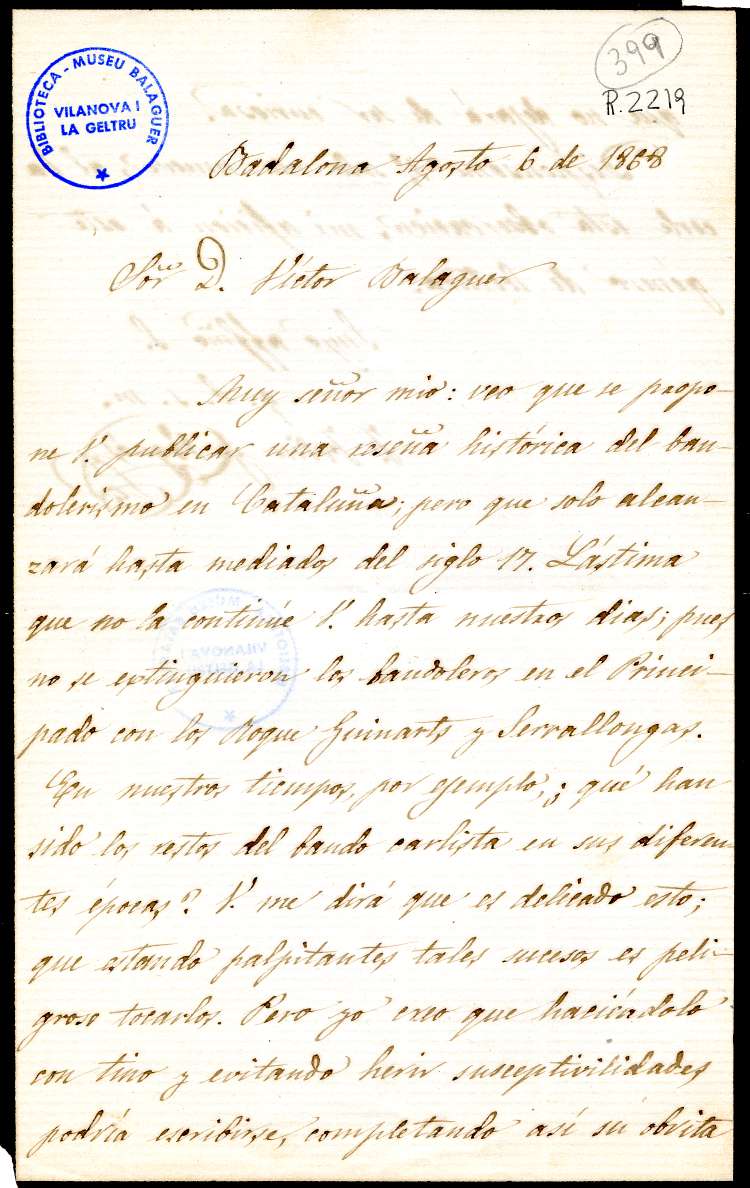 BIBLIOTECA - MUSEU BALAGUER
VILANOVA I
LA GELTRU
399
R.2219
Badalona Agosto 6 de 1868
Sor. D. Víctor Balaguer
Muy señor mio: veo que se propo-
ne V. publicar una reseña histórica del ban-
dolerismo en Cataluña; pero que solo alcan-
zará hasta mediados del siglo 17. Lástima
que no la continúe V. hasta nuestros dias; pues
no se extinguieron los bandoleros en el Princi-
pado con los Roque Guinarts y Serrallongas.
En nuestros tiempos, por ejemplo, ¿qué han
sido los restos del bando carlista en sus diferen-
tes épocas? V. me dirá que es delicado esto;
que estando palpitantes tales sucesos es peli-
groso tocarlos. Pero yo creo que haciéndolo
con tino y evitando herir susceptivilidades
podría escribirse, completando así su obrita